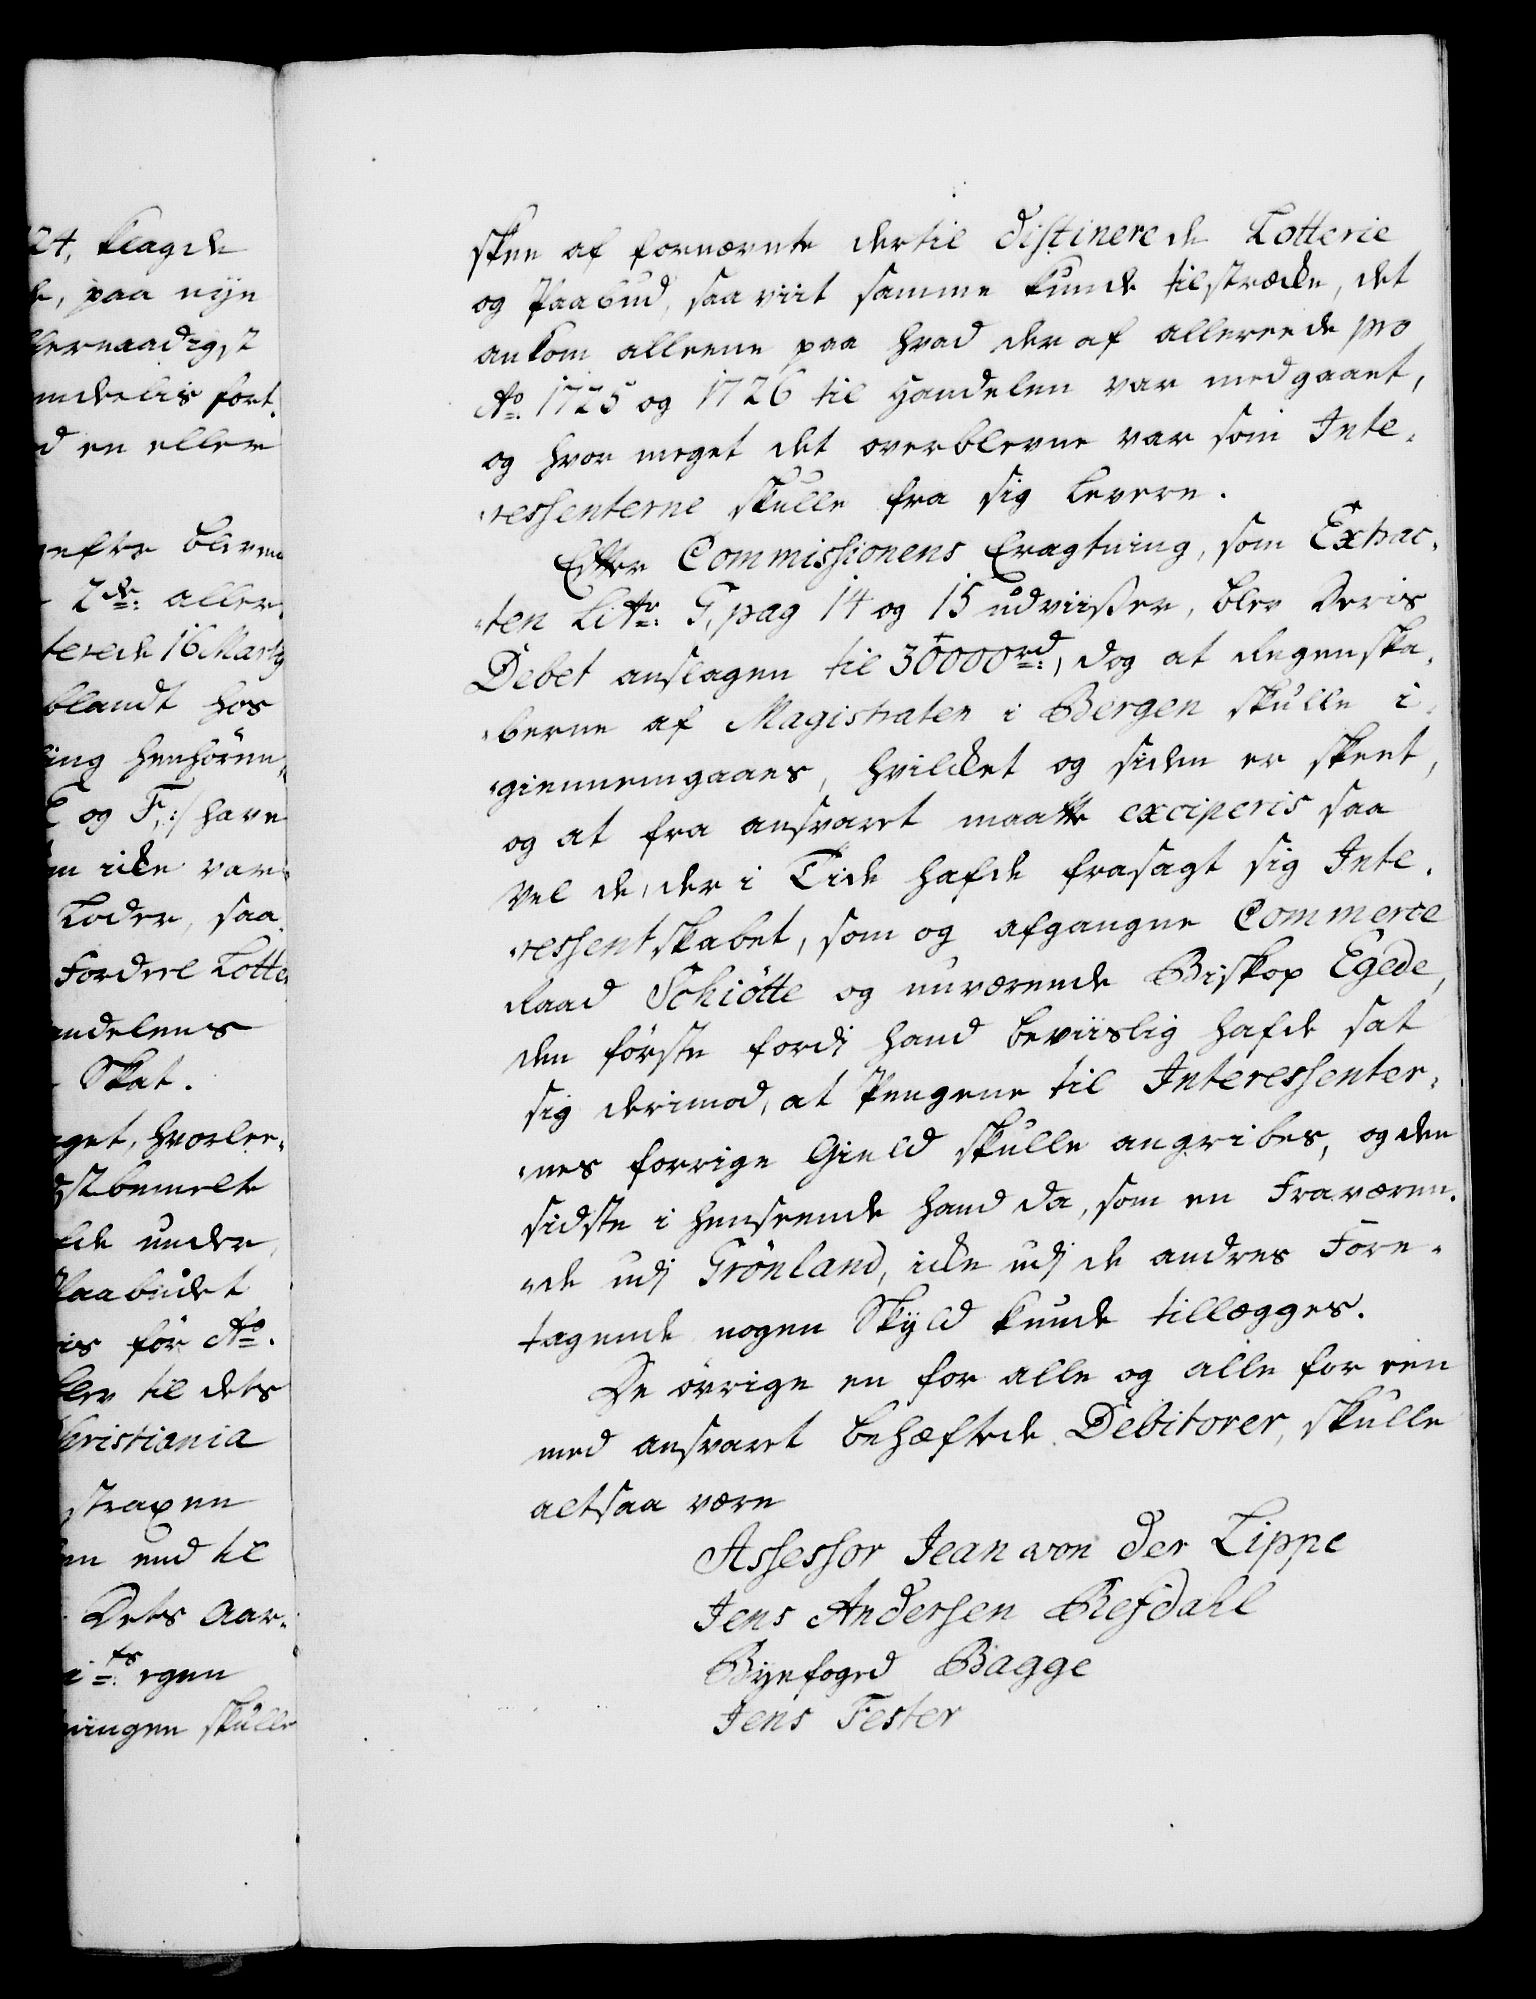 24, klagde
paa nye
llernaadigst
endeelis fort¬
d en eller
efter bleven
2de: aller¬
terede 16 Marty
blandt hos
ing henhören¬
E og F, :/ have
m icke var
Loder, saa¬
Fordeel Lotte
andelens
Skat.
get, hvorlee¬
stbemelte
fde under
Paabudet
is för Ao.
blev til dets
Christiania
straxen
en end til
Dets Aar¬
ts egen
ningen skulle
skee af fornævnte dertil distinerede Lotterie
og Paabud, saa viit samme kunde tilstræcke, det
ankom alleene paa hvad deraf allereede pro
Ao. 1725 og 1726 til Handelen var medgaaet,
og hvor meget det overblevne var som Inte¬
ressenterne skulle fra sig levere.
Efter Commissionens Eragtning, som Extrac¬
ten Litr: G, pag 14 og 15 udviiser, blev Deris
Debet anslagen til 30000rd:, dog at Regenska¬
berne af Magistraten i Bergen skulle i¬
giennemgaaes, hvilcket og siden er skeet,
og at fra ansvaret maatte exciperis saa
vel de, der i Tide hafde frasagt sig Inte¬
ressentskabet, som og afgangne Commerce
Raad Schiötte og nuværende Biskop Egede,
den förste fordj hand beviislig hafde sat
sig derimod, at Pengene til Interessenter¬
nes forrige Gield skulle angribes, og den
sidste i henseende hand da, som en Fraværen¬
de udj Grönland, icke udj de andres Fore¬
tagende nogen Skyld kunde tillægges.
De övrige en for alle og alle for een
med ansvaret behæftede Debitorer, skulle
altsaa være
Assessor Jean von der Lippe
Jens Andersen Refdahl
Byefoged Bagge
Jens Fester